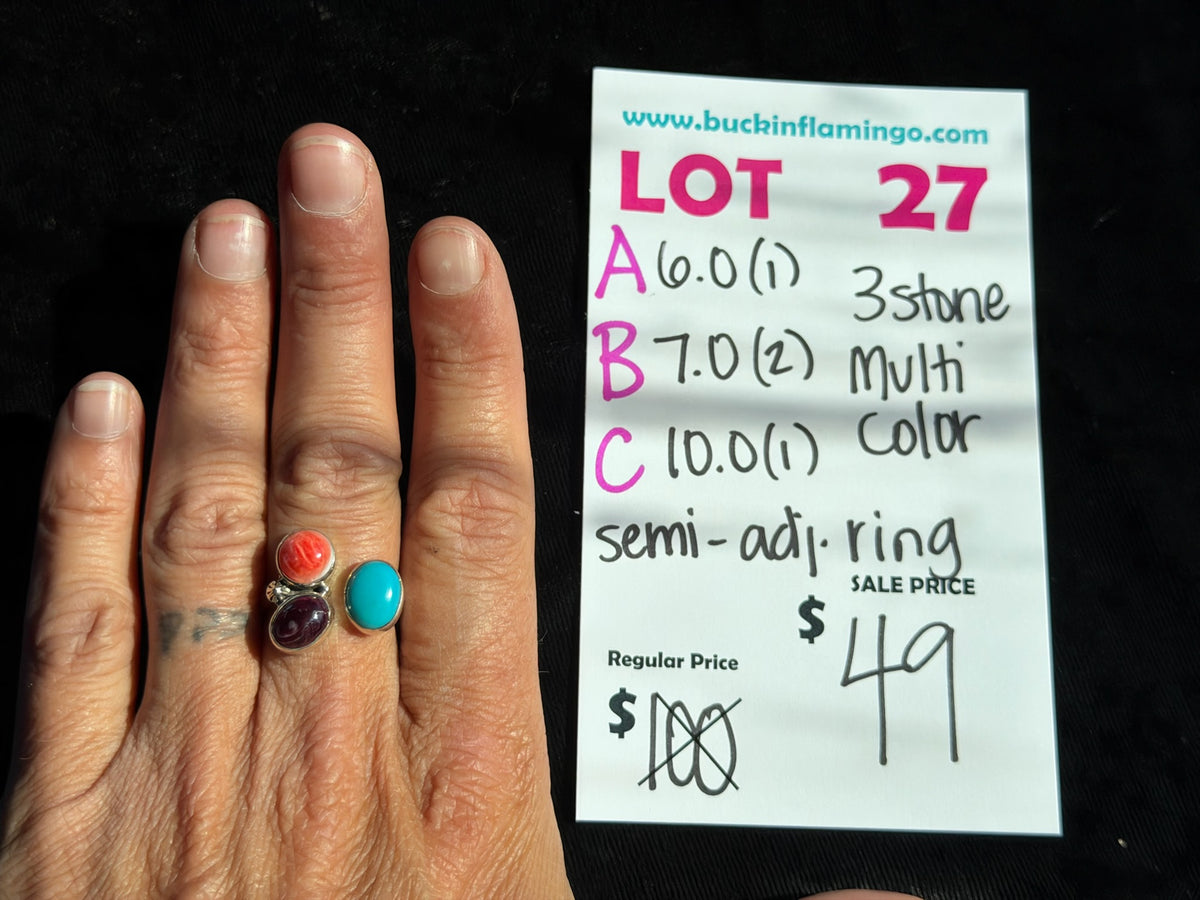 www.buckinflamingo.com
LOT 27
A 6.0(1)
B 7.0(2)
C 10.0(1)
3stone
Multi
color
semi-adj. ring
SALE PRICE
$ 49
Regular Price
$ 100